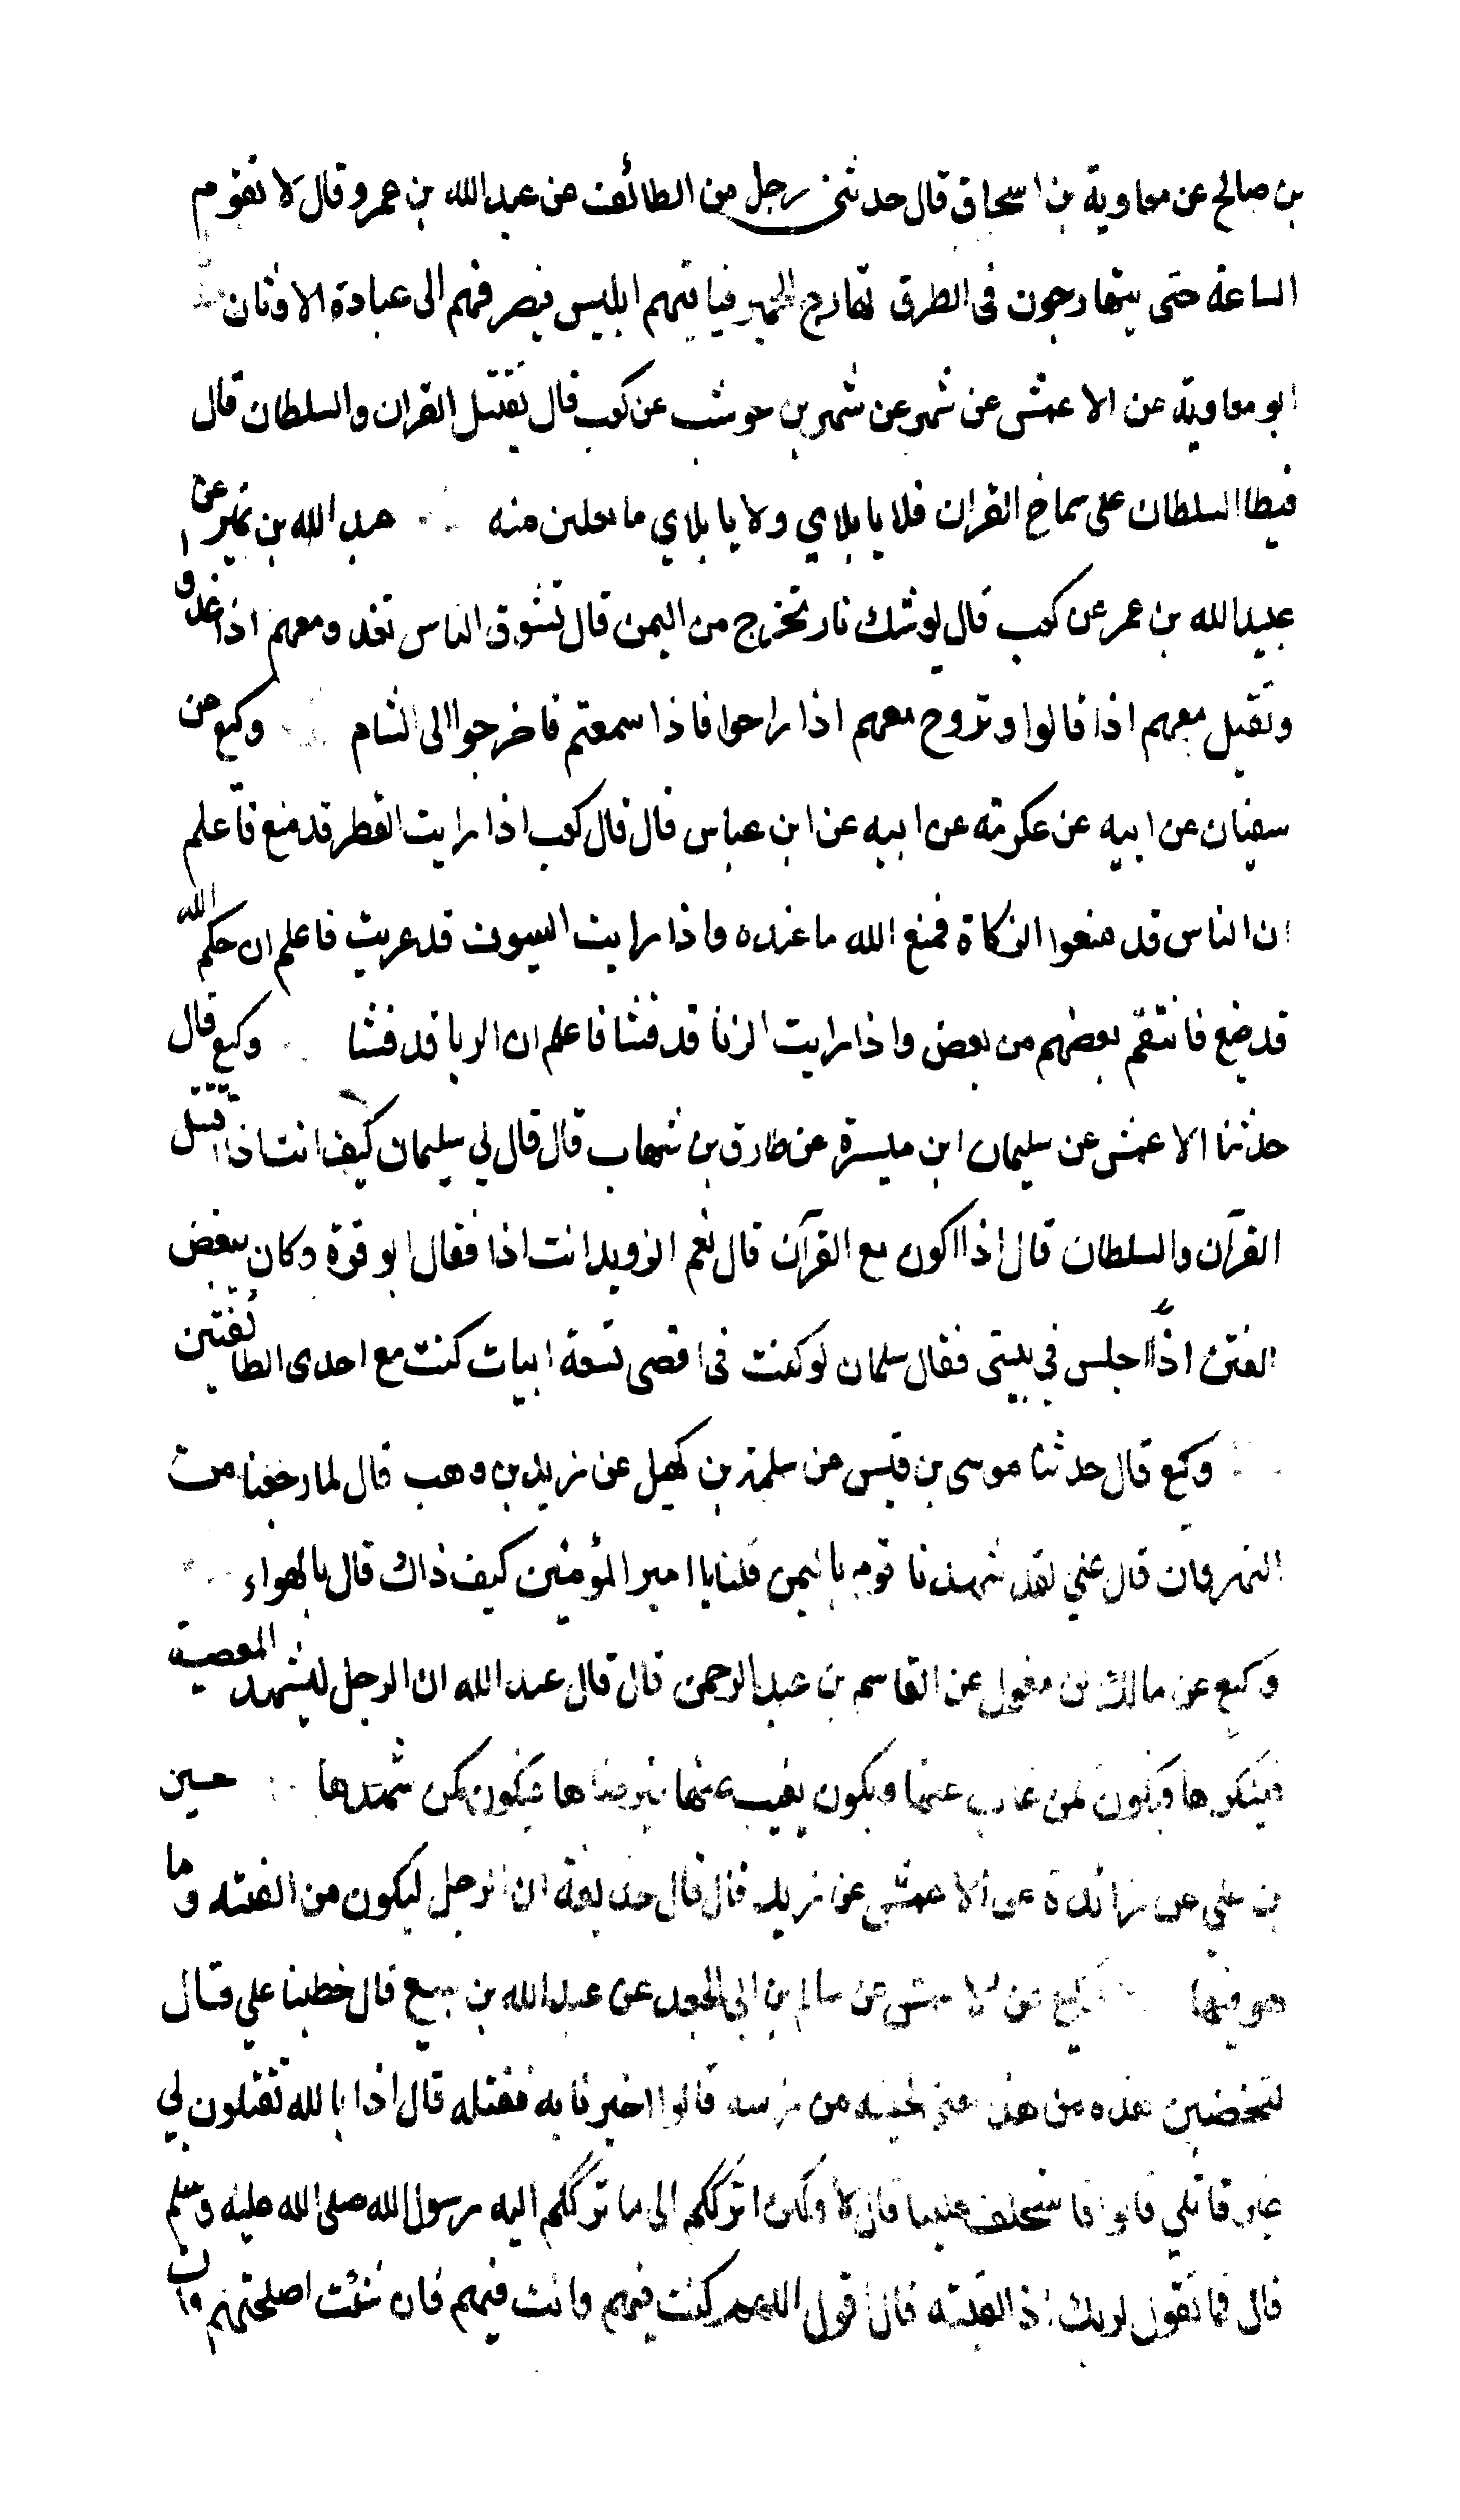 بن صالح عن معاوية بن اسحاق قال حدثني رجل من الطائف عن عبد الله بن عمرو قال لا تقوم
الساعة حتى يتهارجون في الطرق تهارج الحمير فياتيهم ابليس فيصرفهم الى عبادة الاوثان
ابو معاوية عن الاعمش عن شمر عن شهر بن حوشب عن كعب قال يقتتل القران والسلطان قال
فيطا السلطان على سماخ القران فلايا بلاي ولايا بلاي ما تنفلتن منه عبد الله بن نمير عن
عبيد الله بن عمر عن كعب قال يوشك نار تخرج من اليمن قال تسوق الناس تغدو معهم اذا غدوا
وتقيل معهم اذا قالوا وتروح معهم اذا راحوا فاذا سمعتم فاخرجوا الى الشام وكيع عن
سفيان عن ابيه عن عكرمة عن ابيه عن ابن عباس قال قال كعب اذا رايت القطر قد منع فاعلم
ان الناس قد منعوا الزكاة فمنع الله ما عنده واذا رايت السيوف قد عريت فاعلم ان حكم الله
قد ضيع فانتقم بعضهم من بعض واذا رايت الزنا قد فشا فاعلم ان الربا قد فشا وكيع قال
حدثنا الاعمش عن سليمان ابن ميسرة عن طارق بن شهاب قال قال لي سليمان كيف انت اذا اقتتل
القرآن والسلطان قال اذا اكون مع القرآن قال نعم الزويد انت اذا فقال ابو قرة وكان يبغض
الفتن اذًا اجلس في بيتي فقال سلمان لو كنت في اقصى تسعة ابيات كنت مع احدى الطائفتين
وكيع قال حدثنا موسى بن قيس عن سلمة بن كهيل عن زيد بن وهب قال لما رجعنا من
النهروان قال علي لقد شهدنا قوم باليمن قلنا يا امير المؤمنين كيف ذاك قال بالهواء
وكيع عن مالك بن مغول عن القاسم بن عبد الرحمن قال قال عبد الله ان الرجل ليشهد المعصية
فينكرها فيكون كمن غاب عنها ويكون يغيب عنها فيرضاها فيكون كمن شهدها حسين
بن علي عن زائدة عن الاعمش عن زيد قال قال حذيفة ان الرجل ليكون من الفتنه وما
هو فيها وكيع عن الاعمش عن سالم بن ابي الجعد عن عبد الله بن سبيع قال خطبنا علي فقال
لتخضبن هذه من هذا يعني لحيته من راسه قالوا اخبرنا به فنقتله قال اذا بالله تقتلون لي
غير قاتلي قالوا فاستخلف علينا قال لا ولكن اتركّكم الى ما ترككم اليه رسول الله صلى الله عليه وسلم
قال فما تقول لربك اذا لقيته قال اقول اللهم كنت فيهم وانت فيهم فان شئت اصلحتهم وان